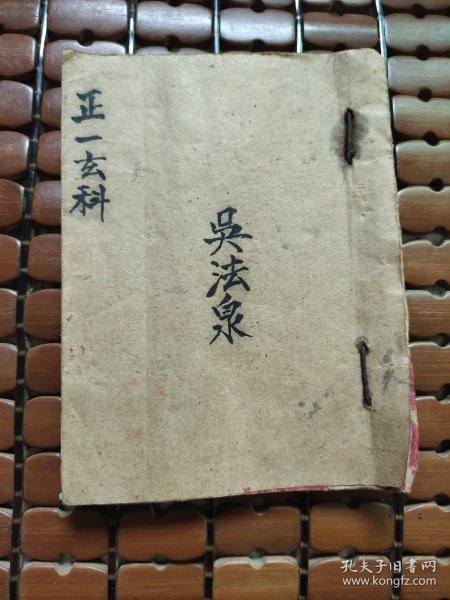 正一玄科
吳法泉
孔夫子旧书网
www.kongfz.com